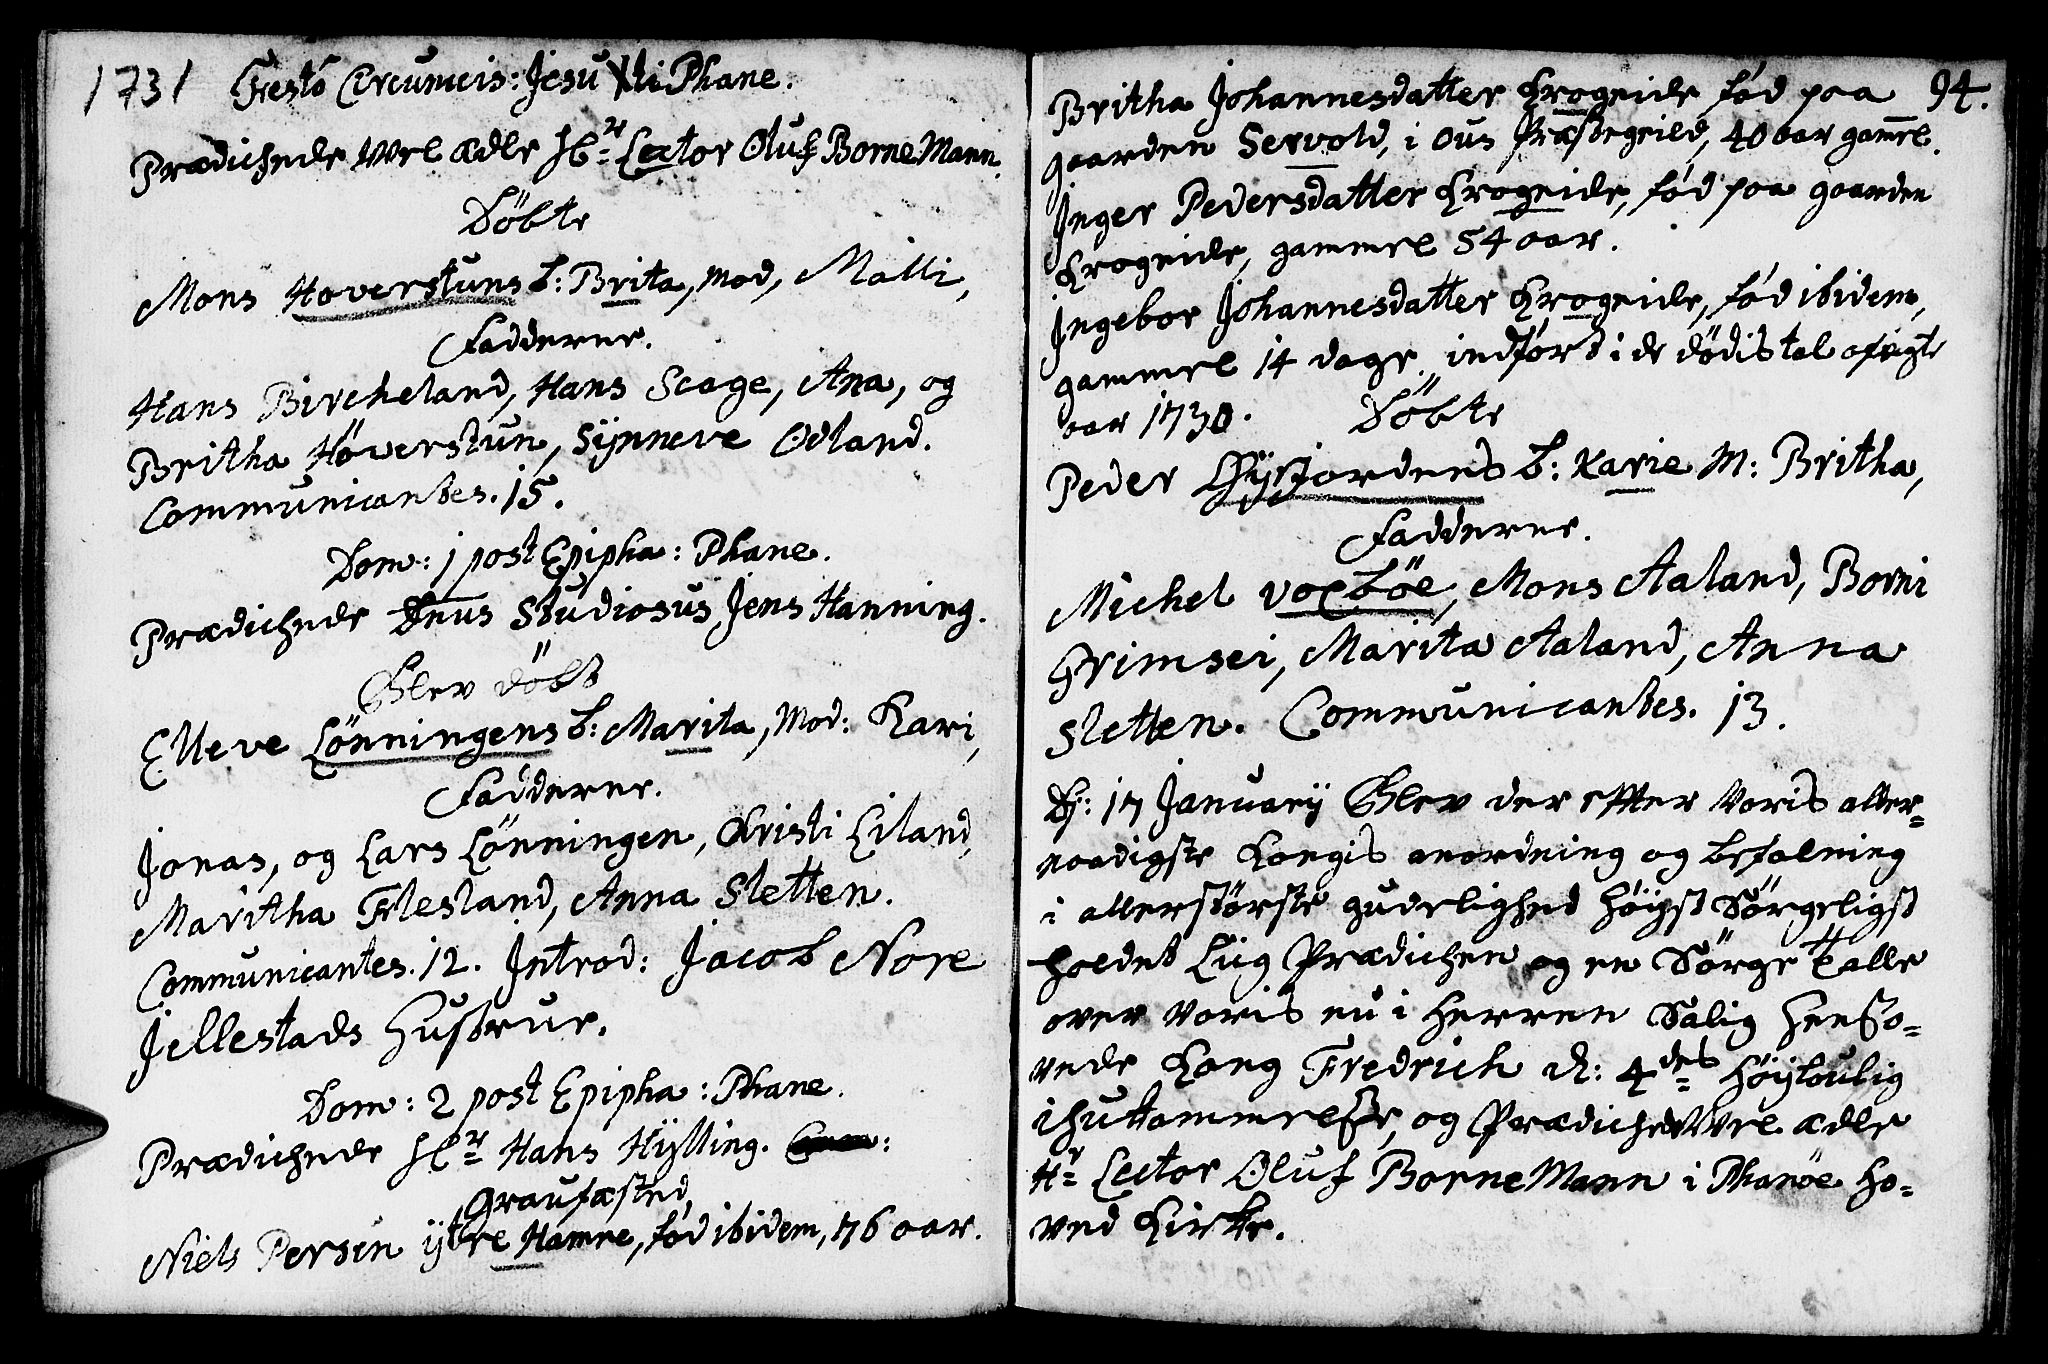 1731 Festo Circumcis: Jesu Xti Phane.
Prædichede Wel ædle Hr Lector Oluf BorneMann.
Döbte
Mons Hoverstuns b: Brita, Mod, Malli,
Fadderne.
Hans Bircheland, Hans Scage, Ana, og
Britha Höverstun, Sÿnneve Odland.
Communicantes. 15.
Dom: 1 post Epipha: Phane.
Prædichede Dnus Studiosus Jens Hanning.
Blev döbt
Elleve Lönningens b: Marita, Mod: Kari,
Fadderne.
Jonas, og Lars Lönningen, Kristi Liland,
Maritha Flesland, Anna Sletten.
Communicantes. 12. Introd: Jacob Nore
Jellestads Hustrue.
Dom: 2 post Epipha: Phane.
Prædichede Hr Hans Hÿlling.
Graufæsted
Niels Persen ÿtre Hamre, föd ibidem, 76 aar.
94.
Britha Johannesdatter Krogeide föd paa
gaarden Servold, i Ous Præstegeild, 40 aar gamel.
Inger Pedersdatter Krogeide, föd paa gaarden
Krogeide, gammel 54 aar.
Ingebor Johannesdatter Krogeide, föd ibidem,
gammel 14 dage, indfört i de dödis tal afvigte
aar 1730. Döbte
Peder Lÿsfjordens b: Karie M: Britha,
Fadderne.
Michel Voxböe, Mons Aaland, Borni
Grimsei, Marita Aaland, Anna
Sletten. Communicantes. 13.
D: 17 Januarÿ Blev der efter Voris aller=
naadigste Kongis anordning og befalning
i allerstörste gudelighed höÿst Sörgeligst
holdet Liig Prædichen og en Sörge talle
over Voris nu i Herren Salig henSo=
vede Kong Fredrich d: 4des Höÿlovlig
ihukommelse, og Prædichede Wel ædle
Hr Lector Oluf BorneMann i Phanöe Ho=
ved Kirke.